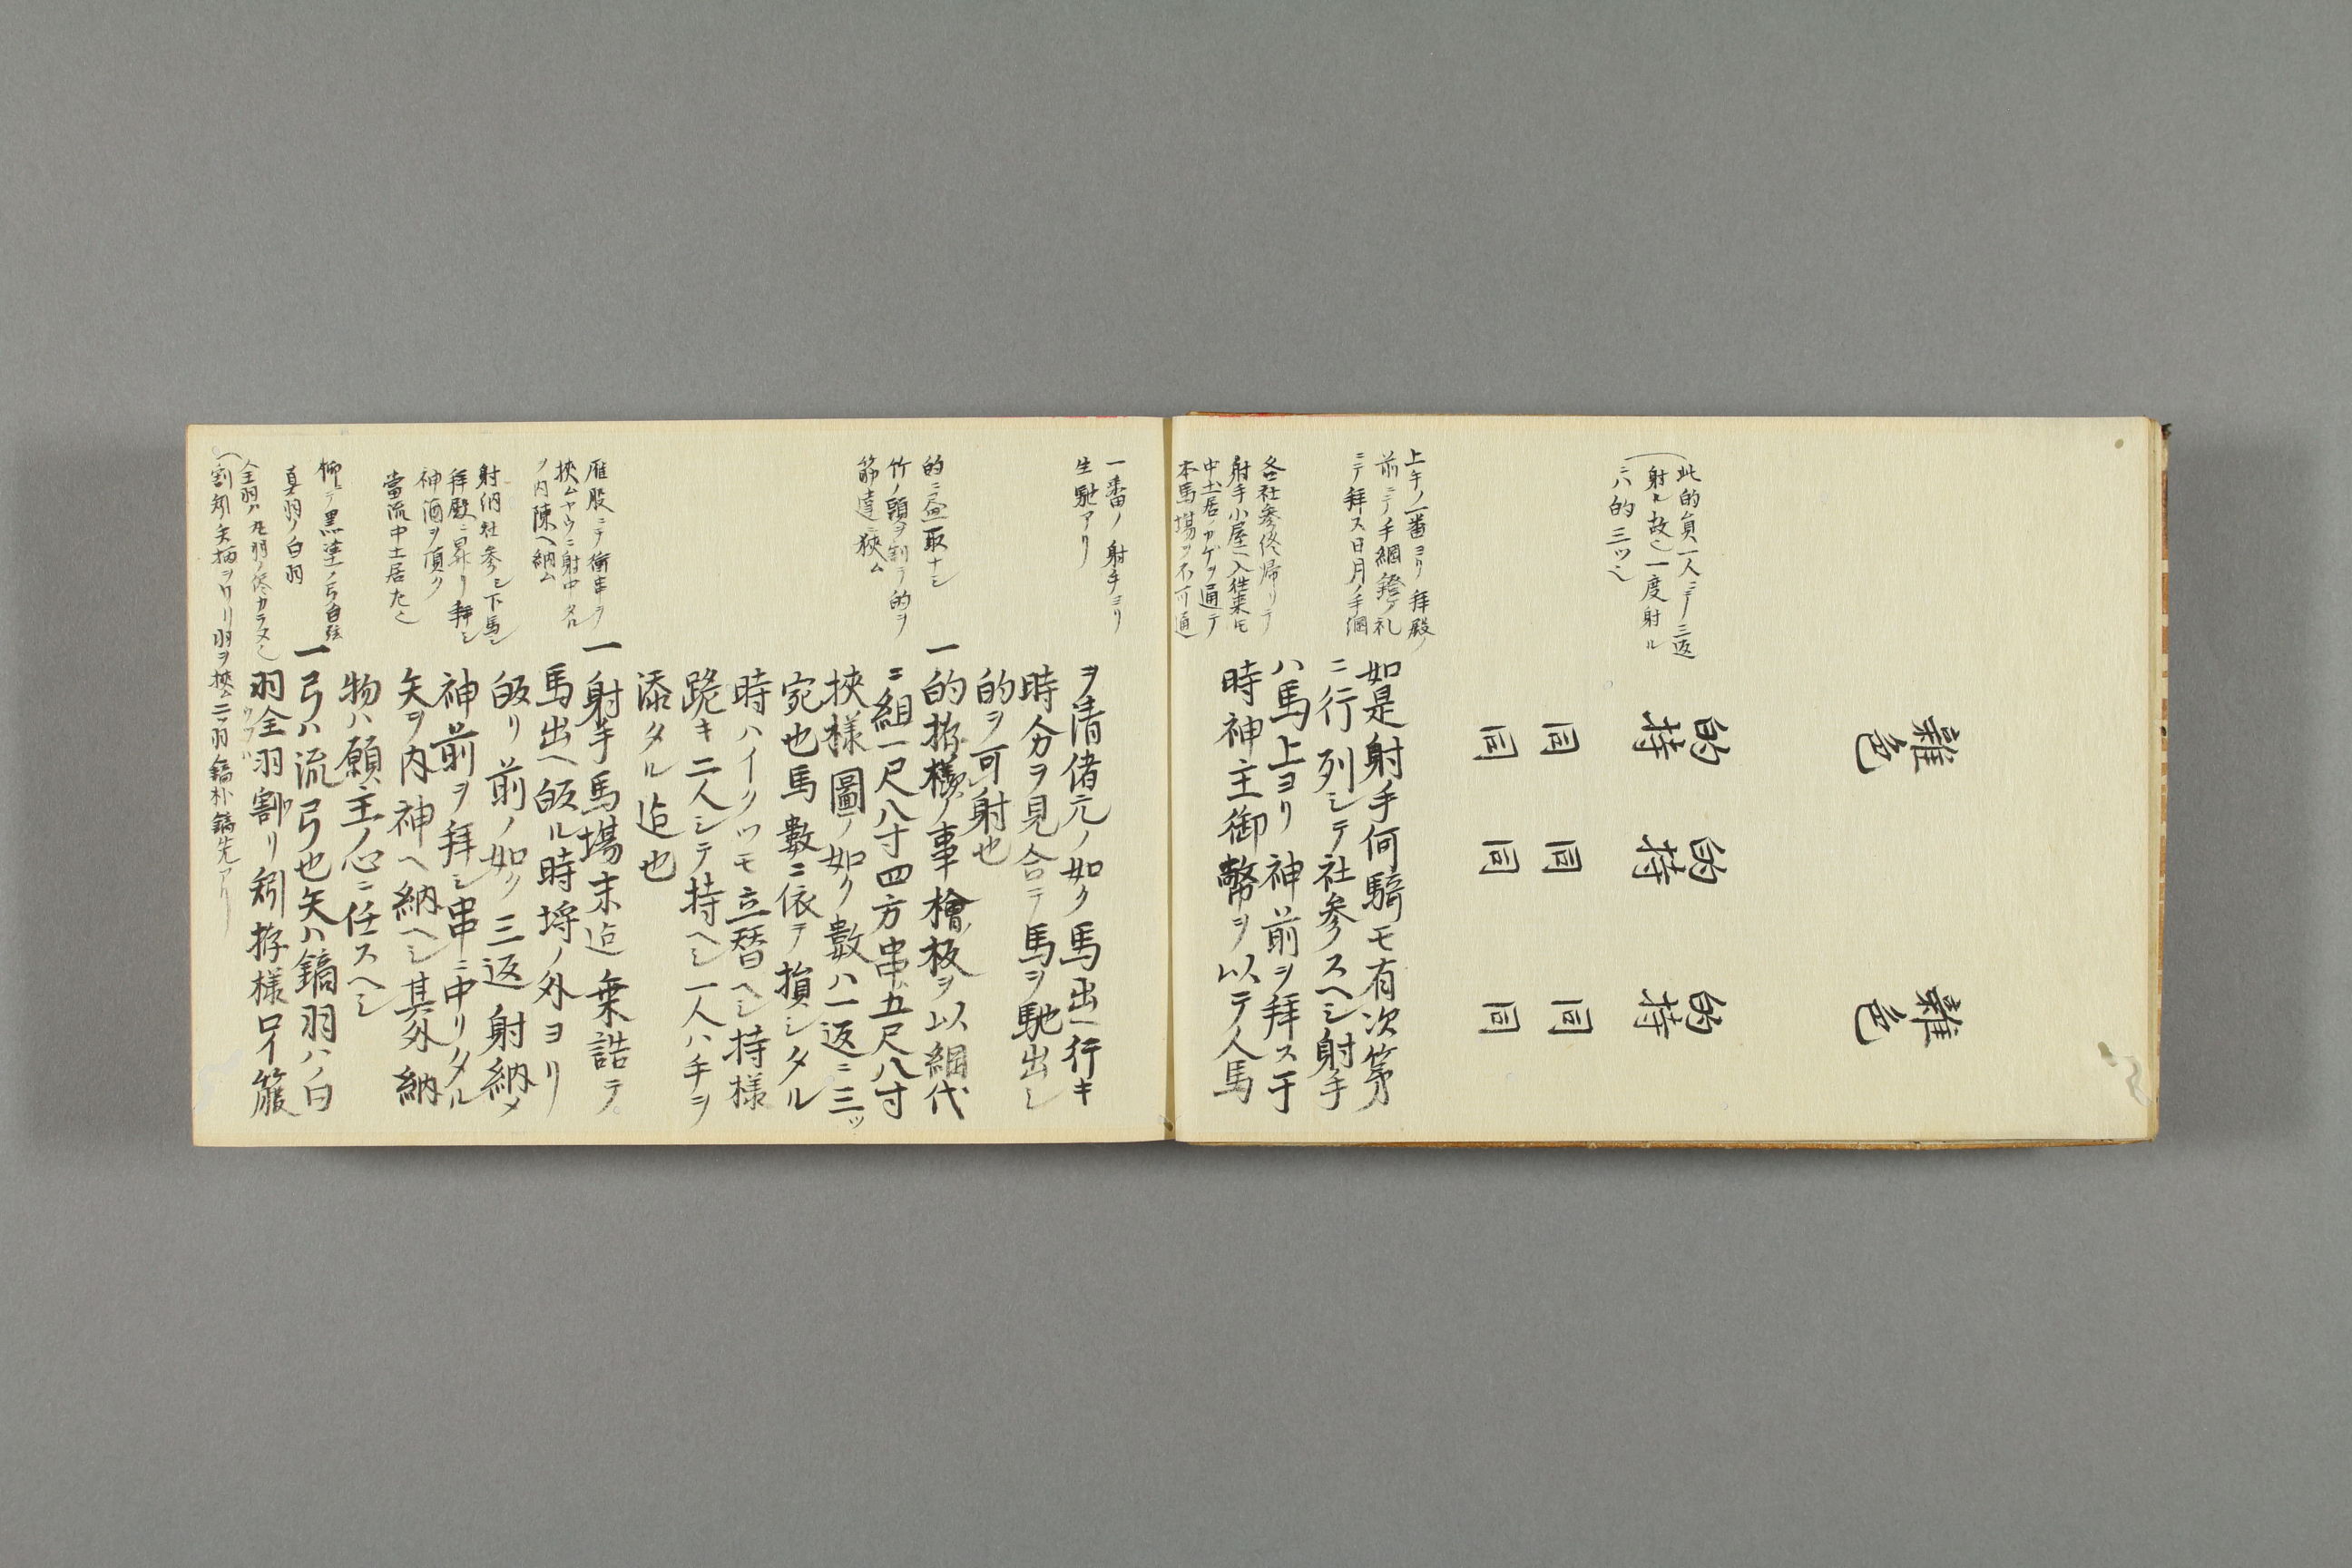 雜色
雜色
的持
的持
的持
同
同
同
同
同
同
此的負一人ニテ三返
射ル故也一度射ル
ニハ的三ツ也
上手ノ一番ヨリ拜殿ノ
前ニテノ手綱鐙ノ礼
ニテ拜ス日月ノ手綱
如是射手何騎モ有次第
ニ行列シテ社参スヘシ射手
ハ馬上ヨリ神前ヲ拜ス于
時神主御幣ヲ以テ人馬
各社参終帰リテ
射手小屋ヘ入往来モ
中土居ノカゲヲ通テ
本馬場ヲ不可通
一番ノ射手ヨリ
生馳アリ
ヲ清偖元ノ如ク馬出ヘ行キ
時分ヲ見合テ馬ヲ馳出シ
的ヲ可射也
的ニ面取ナシ
竹ノ頭ヲ割テ的ヲ
筋違ニ狹ム
一的拵樣ノ事檜板ヲ以綱代
ニ組一尺八寸四方串ハ五尺八寸
挾様圖ノ如ク數ハ一返ニ三ツ
宛也馬數ニ依テ損シタル
時ハイクツモ立替ヘシ持様
跪キ二人シテ持ヘシ一人ハ手ヲ
添タル迠也
雁股ニテ衝串ヲ
挾ムヤウニ射中タル
ノ内陳ヘ納ム
射納社参シ下馬シ
拜殿ニ昇リ拜シ
神酒ヲ頂ク
當流中土居左也
一射手馬場末迠乗詰テ
馬出ヘ皈ル時埒ノ外ヨリ
皈リ前ノ如ク三返射納メ
神前ヲ拜シ串ニ中リタル
矢ヲ内神ヘ納ヘシ其外納
物ハ願主ノ心ニ任スヘシ
柳ニテ黒塗ノ弓白弦
真羽ノ白羽
全羽ハ丸羽ノ終カラヌ也
割矧矢柄ヲワリ羽ヲ挾ム二ツ羽鏑朴鏑先アリ
一弓ハ流弓也矢ハ鏑羽ハ白
羽全羽割リ矧拵様口イ箙